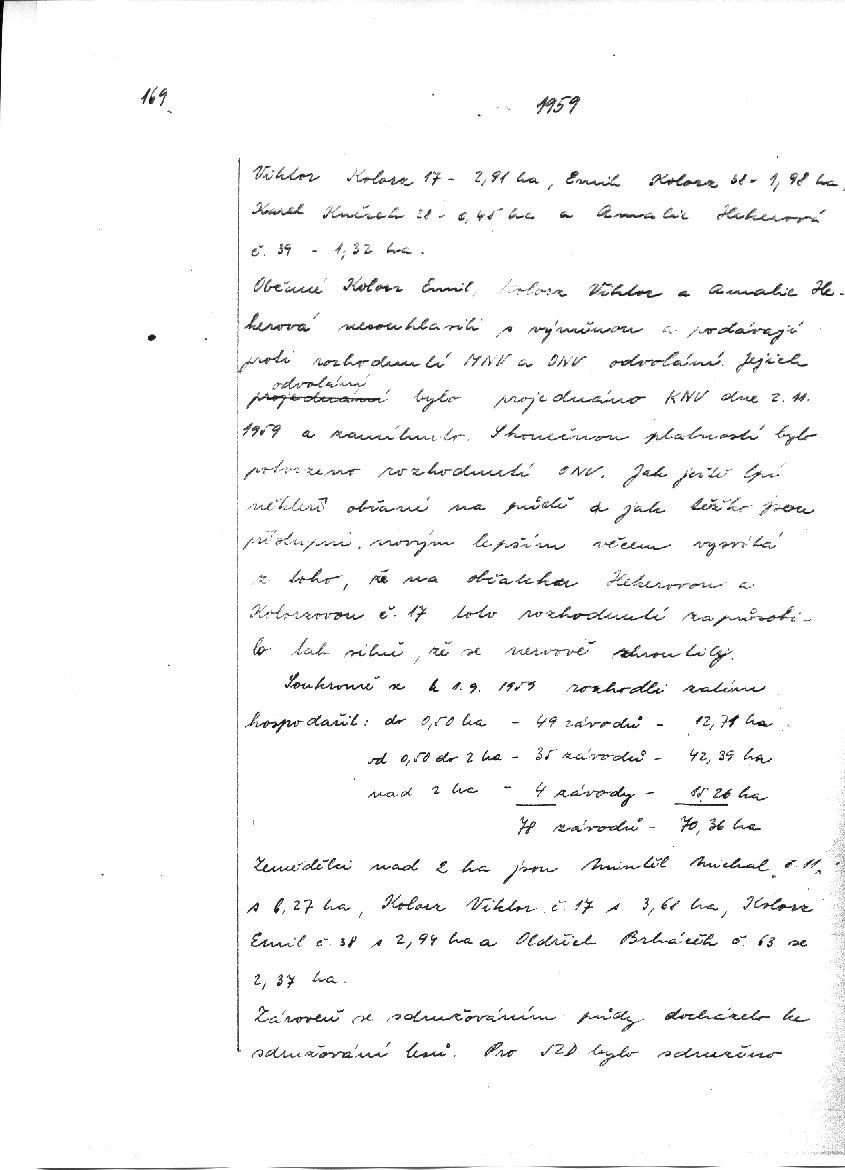 169
1959
Viktor Kolorz 17 - 2,91 ha, Emil Kolorz 38 - 1,98 ha,
Karel 28 - 0,45 ha a Amalie Hekerová
č. 39 - 1,32 ha.
Občané Kolorz Emil, Kolorz Viktor a Amalie He-
kerová nesouhlasili s výměnou a podávají
proti rozhodnutí MNV a ONV odvolání. Jejich
odvolání
projednání bylo projednáno KNV dne 2. 11.
1959 a zamítnuto. Skonečnou platností bylo
potvrzeno rozhodnutí ONV. Jak ještě lpí
někteří občané na půdě a jak těžko jsou
přístupni novým lepším věcem vysvítá
z toho, že na občanku Hekerovou a
Kolorzovou č. 17 toto rozhodnutí zapůsobi-
lo tak silně, že se nervově zhroutily.
Soukromě k 1. 9. 1959 rozhodli zatím
hospodařil: do 0,50 ha - 49 závodů - 12,71 ha
od 0,50 do 2 ha - 35 závodů - 42,39 ha
nad 2 ha - 4 závody - 15,26 ha
78 závodů - 70,36 ha
Zemědělci nad 2 ha jsou Michal č. 11,
s 6,27 ha, Kolorz Viktor č. 17 s 3,68 ha, Kolorz
Emil č. 38 s 2,94 ha a Oldřich č. 63 se
2,37 ha.
Zároveň se sdružováním půdy docházelo ke
sdružování lesů. Pro JZD bylo sdruženo